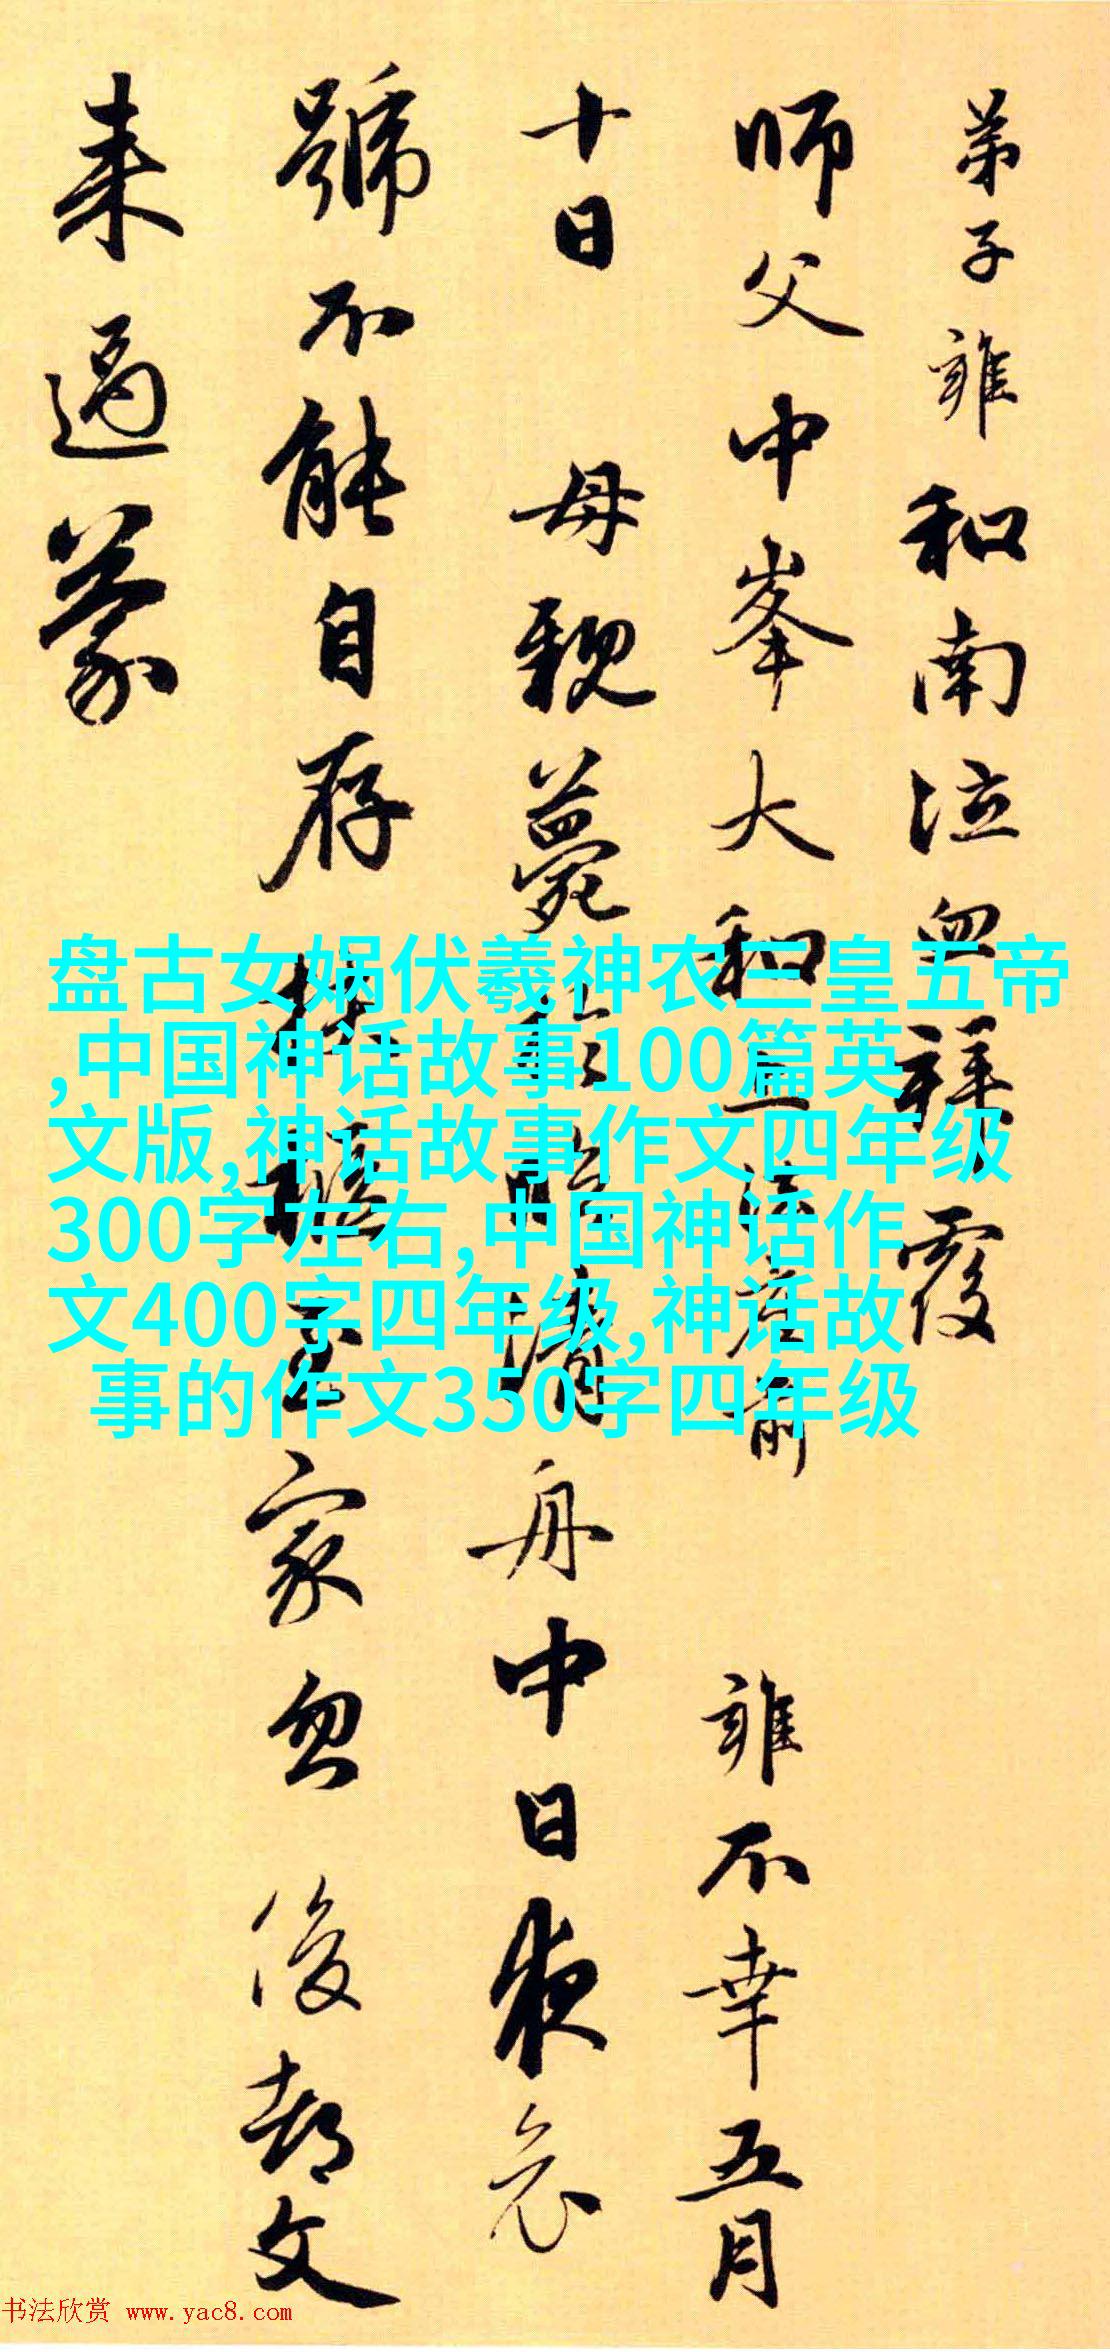 弟子雍和南泣血拜覆
師父中峯大和上法座前 雍不幸五月
十日 母親薨於臨清舟中日夜哀
號不能自存扶櫬至家忽 後都文
来過蒙
盘古女娲伏羲神农三皇五帝
,中国神话故事100篇英
文版,神话故事作文四年级
300字左右,中国神话作
文400字四年级,神话故
事的作文350字四年级
书法欣赏 www.yac8.com